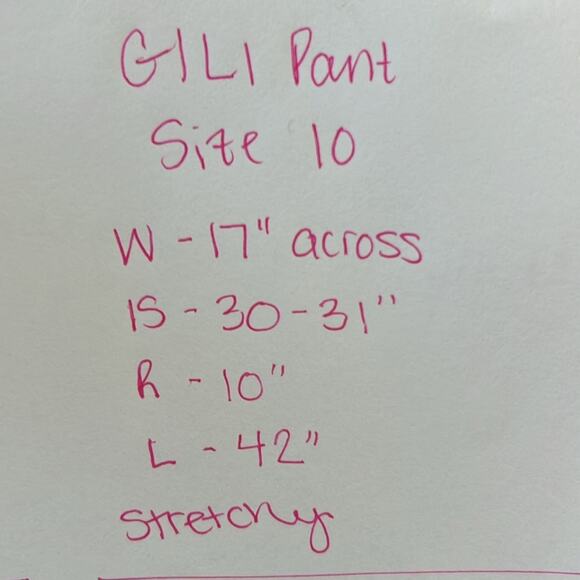 GILI Pant
Size 10
W - 17" across
IS - 30 - 31"
R - 10"
L - 42"
Stretchy